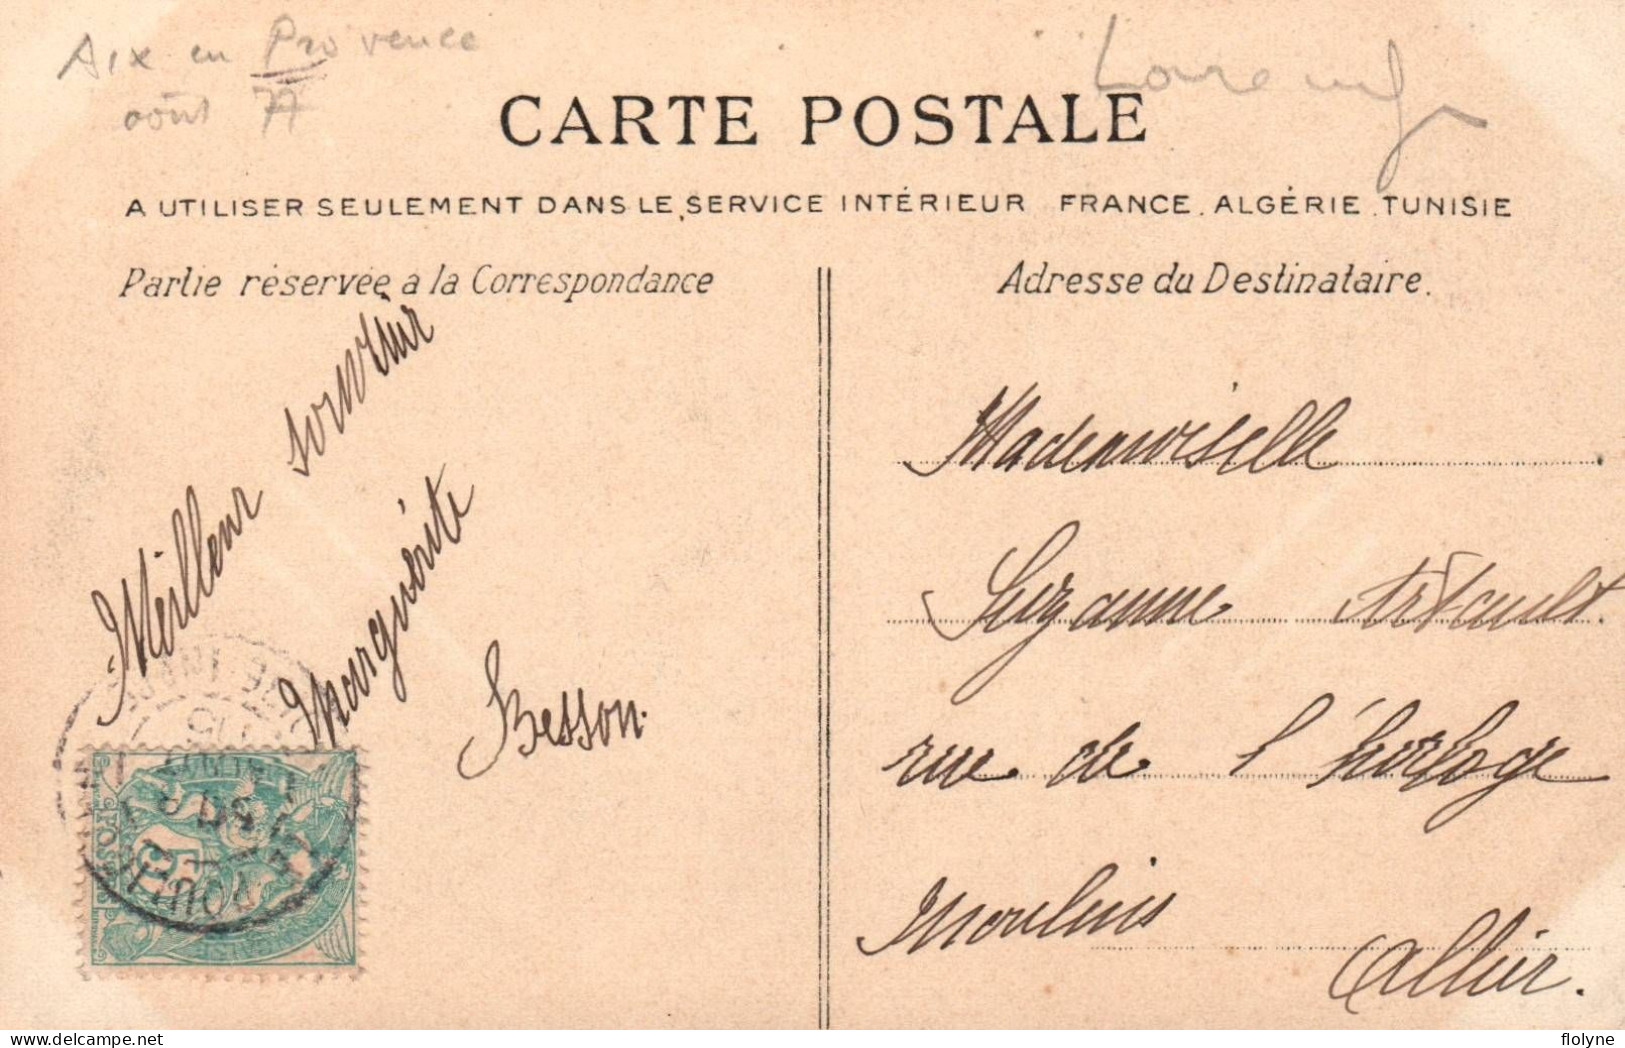 Aix en Provence
août 77
CARTE POSTALE
A UTILISER SEULEMENT DANS LE SERVICE INTÉRIEUR FRANCE. ALGÉRIE. TUNISIE
Partie réservée à la Correspondance
Meilleur souvenir
Marguérite
Besson.
Adresse du Destinataire.
Mademoiselle
Suzanne Artault.
rue de l'horloge
Moulins
Allier.
POSTES
flolyne